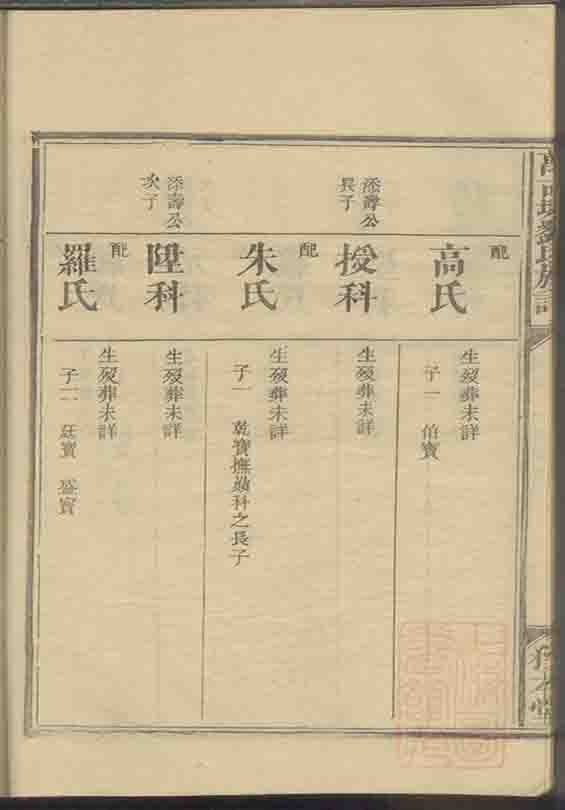 配
高氏
生歿葬未詳
子一 伯寶
添壽公
長子
授科
生歿葬未詳
配
朱氏
生歿葬未詳
子一 乾寶撫陞科之長子
添壽公
次子
陞科
生歿葬未詳
配
羅氏
生歿葬未詳
子二 廷寶 盛寶